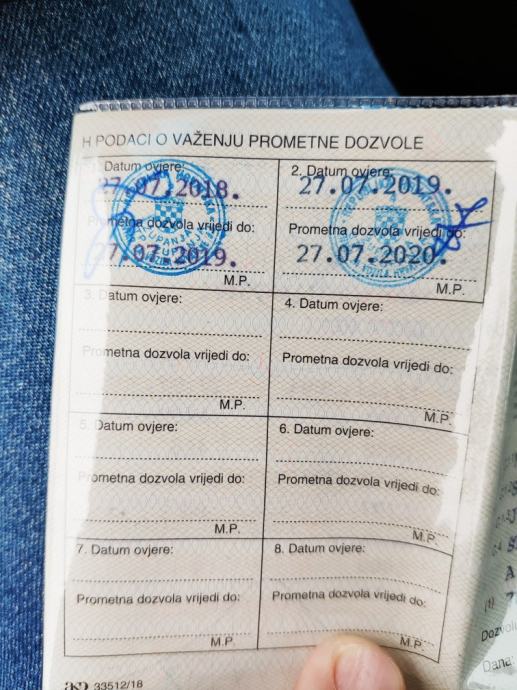 H PODACI O VAŽENJU PROMETNE DOZVOLE
1. Datum ovjere:
27.07.2018.
Prometna dozvola vrijedi do:
27.07.2019.
M.P.
2. Datum ovjere:
27.07.2019.
Prometna dozvola vrijedi do:
27.07.2020.
M.P.
3. Datum ovjere:
Prometna dozvola vrijedi do:
M.P.
4. Datum ovjere:
Prometna dozvola vrijedi do:
M.P.
5. Datum ovjere:
Prometna dozvola vrijedi do:
M.P.
6. Datum ovjere:
Prometna dozvola vrijedi do:
M.P.
7. Datum ovjere:
Prometna dozvola vrijedi do:
M.P.
8. Datum ovjere:
Prometna dozvola vrijedi do:
M.P.
33512/18
Dana: